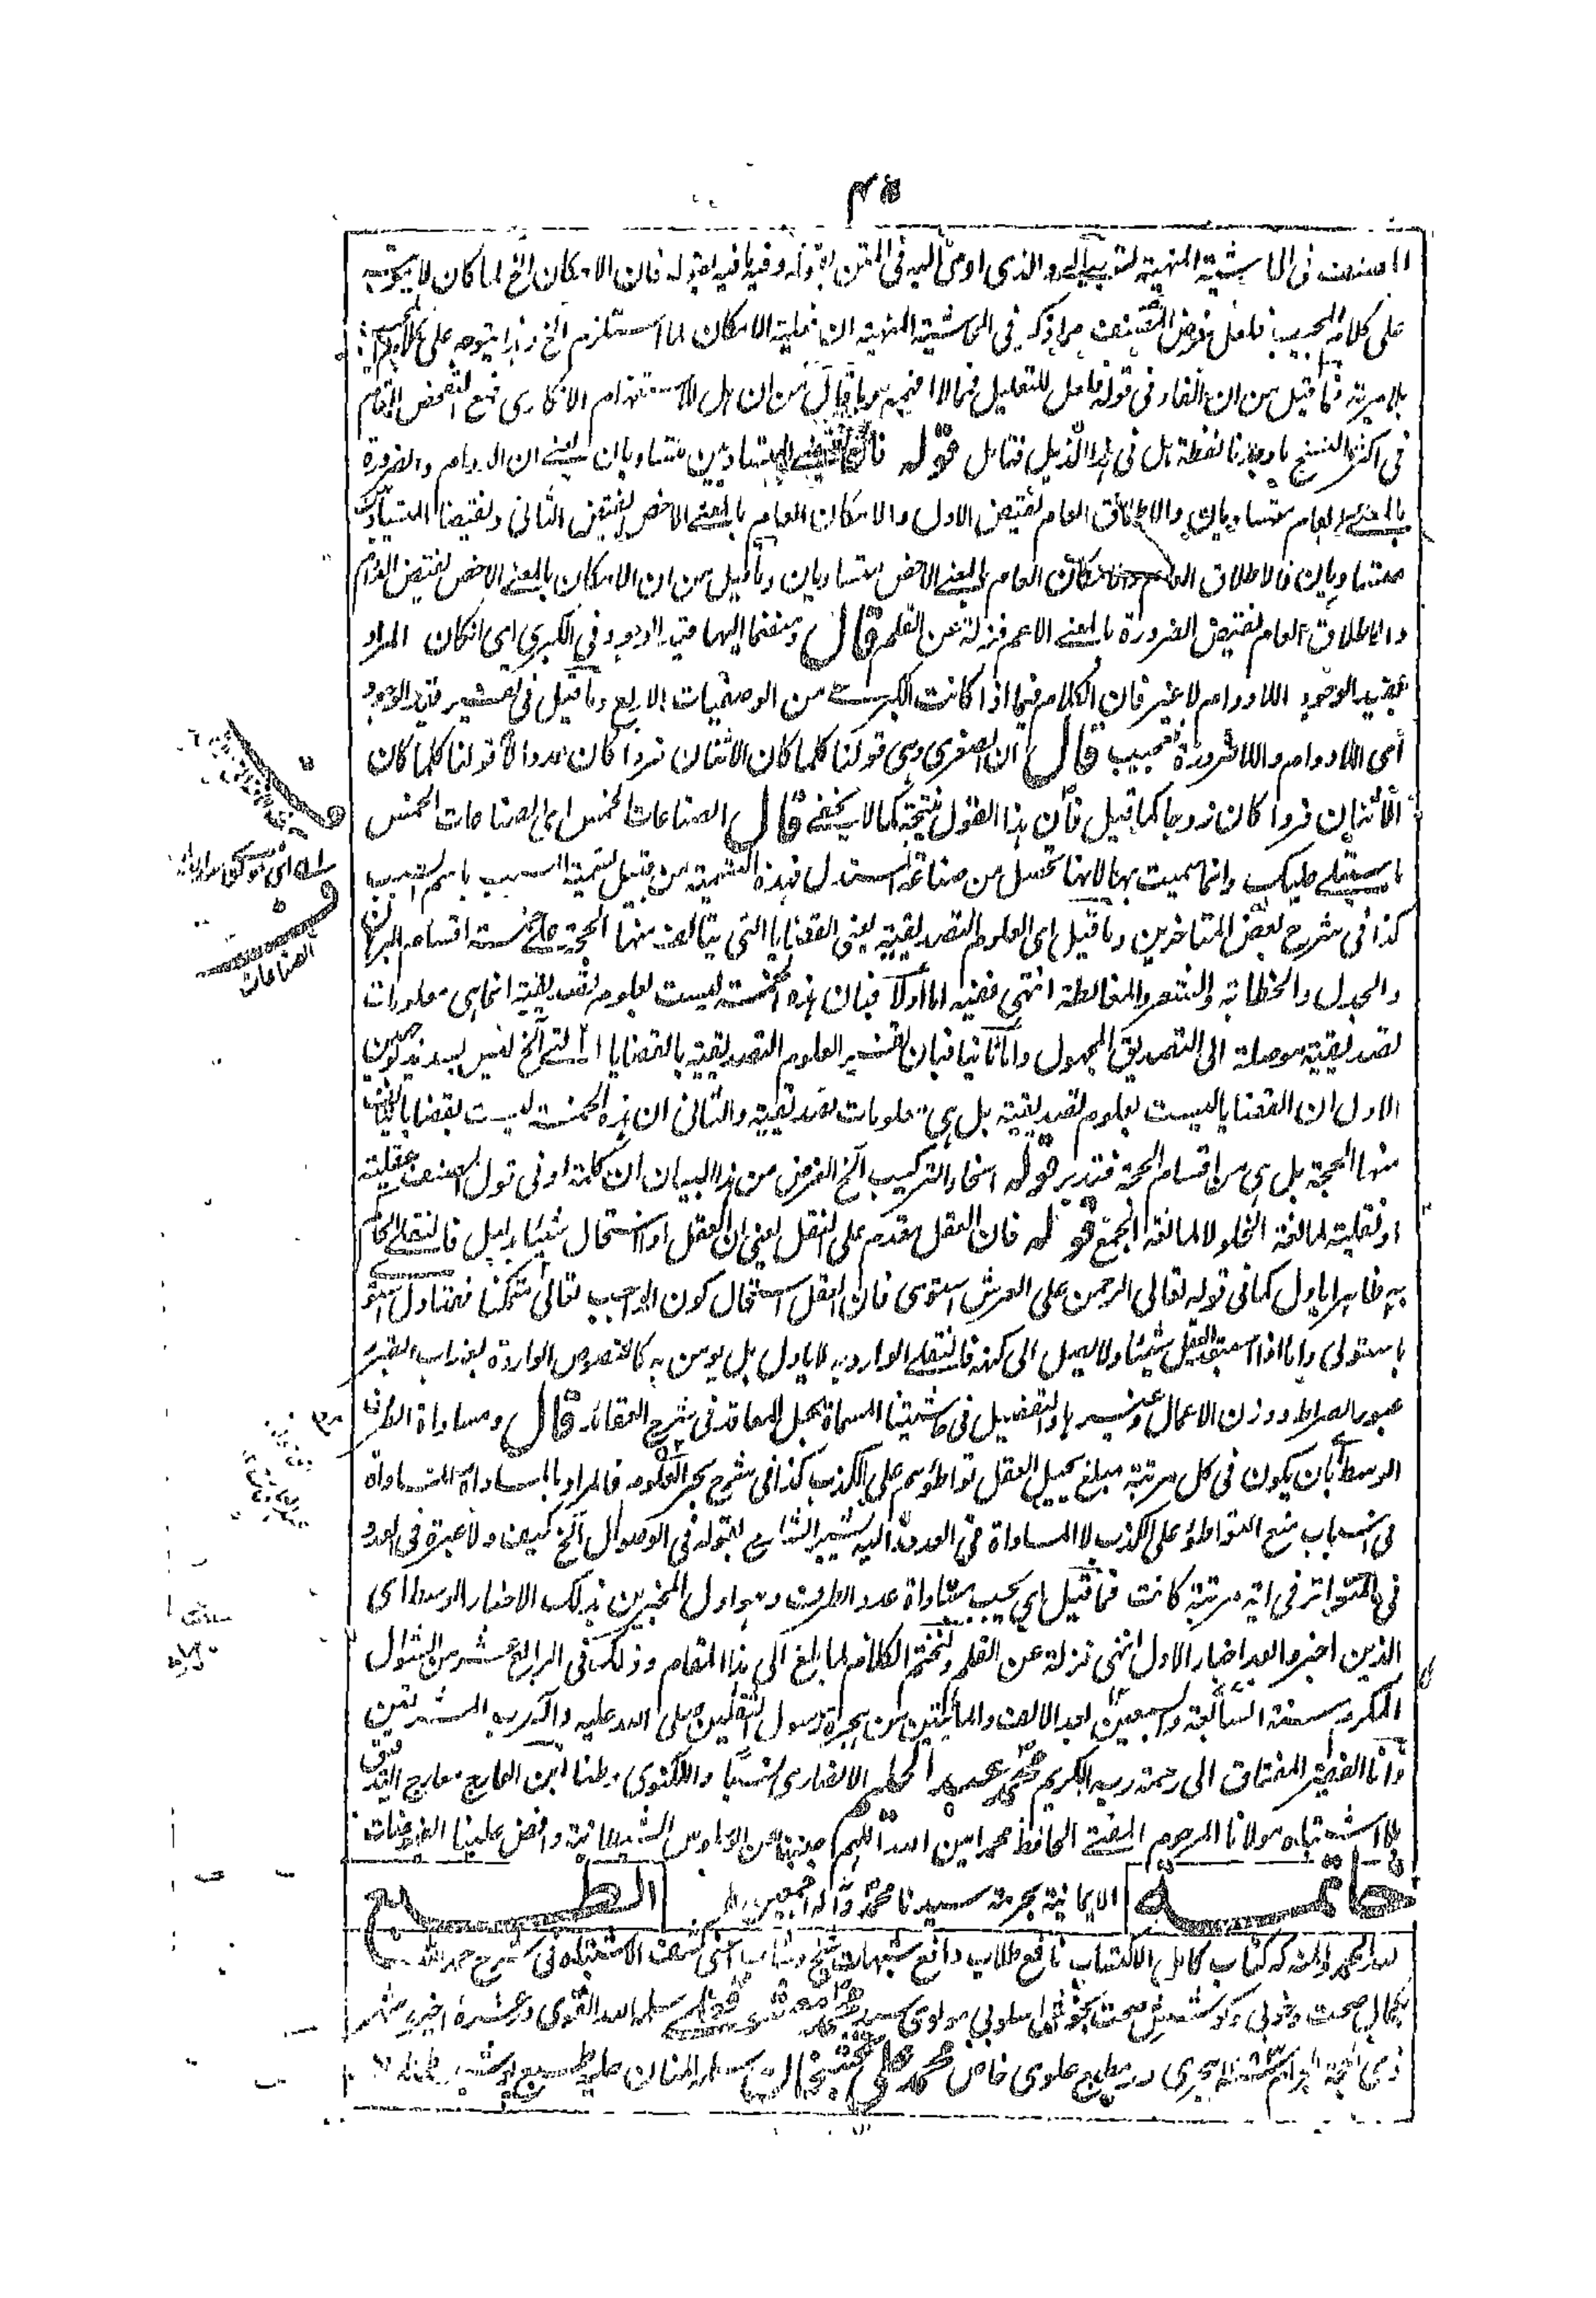 المصنف فى الحاشية المنهية والذى اومى اليه فى المتن بقوله وفيه ما فيه بقوله فان الامكان الخ لما كان لا يتوجه
على كلام المجيب فلعل غرض المصنف مما ذكر فى الحاشية المنهية ان فعلية الامكان لما استلزم الخ
بلا مرية فما قيل من ان الفاء فى قوله للتعليل وما قيل من ان هل للاستفهام الانكارى
فى اكثر النسخ ما وجدنا لفظة هل فى هذا الذيل فتامل قوله المتساويين متساويان يعنى ان الدوام والضرورة
بالمعنى العام متساويان والاطلاق العام نقيض الاول والامكان العام بالمعنى الاخص نقيض الثانى ونقيضا المتساويين
متساويان فالاطلاق العام والامكان العام بالمعنى الاخص متساويان وما قيل من ان الامكان بالمعنى الاخص نقيض الدوام
والاطلاق العام نقيض الضرورة بالمعنى الاعم فزلة عن القلم قال ومنضما اليها قيد الوجود فى الكبرى اى انكان المراد
بقيد الوجود اللادوام لا غير فان الكلام فيما اذا كانت الكبرى من الوصفيات الاربع وما قيل فى تفسير قيد الوجود
اى اللادوام واللاضرورة فعجيب قال ان الصغرى وهى قولنا كلما كان الاثنان فردا كان عددا لا قولنا كلما كان
الاثنان فردا كان زوجا كما قيل فان هذا القول نتيجة كما لا يخفى قال الصناعات الخمس اى الصناعات الخمس
ما سيتلى عليك وانما سميت بها لانها تحصل من صناعة المستدل فهذه التسمية من قبيل تسمية السبب باسم المسبب
كذا فى شرح بعض المتاخرين وما قيل اى العلوم التصديقية يعنى القضايا التى يتالف منها الحجة على خمسة اقسام البرهان
والجدل والخطابة والشعر والمغالطة انتهى ففيه اما اولا فبان هذه الخمسة ليست بعلوم تصديقية انما هى معلومات
تصديقية موصلة الى التصديق المجهول واما ثانيا فبان تفسير العلوم التصديقية بالقضايا التى الخ ليس بسديد لوجهين
الاول ان القضايا ليست بعلوم تصديقية بل هى معلومات تصديقية والثانى ان هذه الخمسة ليست بقضايا يتالف
منها الحجة بل هى من اقسام الحجة فتدبر قوله انحاء التركيب الخ الغرض من هذا البيان ان كلمة او فى قول المصنف عقلية
او نقلية لمانعة الخلو لا لمانعة الجمع قوله فان العقل مقدم على النقل يعنى ان العقل اذا استحال شيئا فالنقلى الحاكم
به ظاهرا ياول كما فى قوله تعالى الرحمن على العرش استوى فان العقل استحال كون الواجب تعالى متمكنا فيتاول استوى
باستولى واما اذا العقل شيئا ولا يصل الى كنهه فالنقلى الوارد به لا ياول بل يومن به كالنصوص الواردة بعذاب القبر
عبور الصراط ووزن الاعمال وغيرها والتفصيل فى حاشيتنا المسماة بحل المعاقد فى شرح العقائد قال ومساواة الطرف
الوسط بان يكون فى كل مرتبة مبلغ يحيل العقل تواطؤهم على الكذب كذا فى شرح بحر العلوم فالمراد بالمساواة المساواة
فى منع التواطؤ على الكذب لا المساواة فى العدد واليه يشير الشارح بقوله فى الوصول الخ كيف ولا عبرة فى العدد
فى المتواتر فى اية مرتبة كانت فما قيل اى يجب مساواة عدد الطرف وهو اول المخبرين بذلك الاخبار الوسط اى
الذين اخبروا بعد اخبار الاول انتهى فزلة عن القلم ولنختم الكلام لما بلغ الى هذا المقام وذلك فى الرابع عشر من الشوال
المكرم سنة السابعة والسبعين بعد الالف والمائتين من هجرة رسول الثقلين صلى الله عليه وآله رب المشرقين
وانا الفقير المفتاق الى رحمة ربه الكريم محمد عبد الحليم الانصارى نسبا واللكنوى وطنا ابن العارج معارج التدقيق
بلا اشتباه مولانا المرحوم المفتى الحافظ محمد امين الله اللهم جنبنا عن الوساوس الشيطانية وافض علينا الفيوضات
خاتمة الايمانية بحرمة سيدنا محمد وآله اجمعين الطبع
لله الحمد والمنة كه كتاب كامل الاكتساب نافع طلاب دافع شبهات شيخ وشاب اعنى كشف الاشتباه فى شرح حمد الله
بكمال صحت وخوبى وكوشش مولوى سيد سلمه الله القوى در عشرهٔ اخير شهر
ذى الحجة هجرى در مطبع علوى خاص محمد على بخش خان
الصناعات